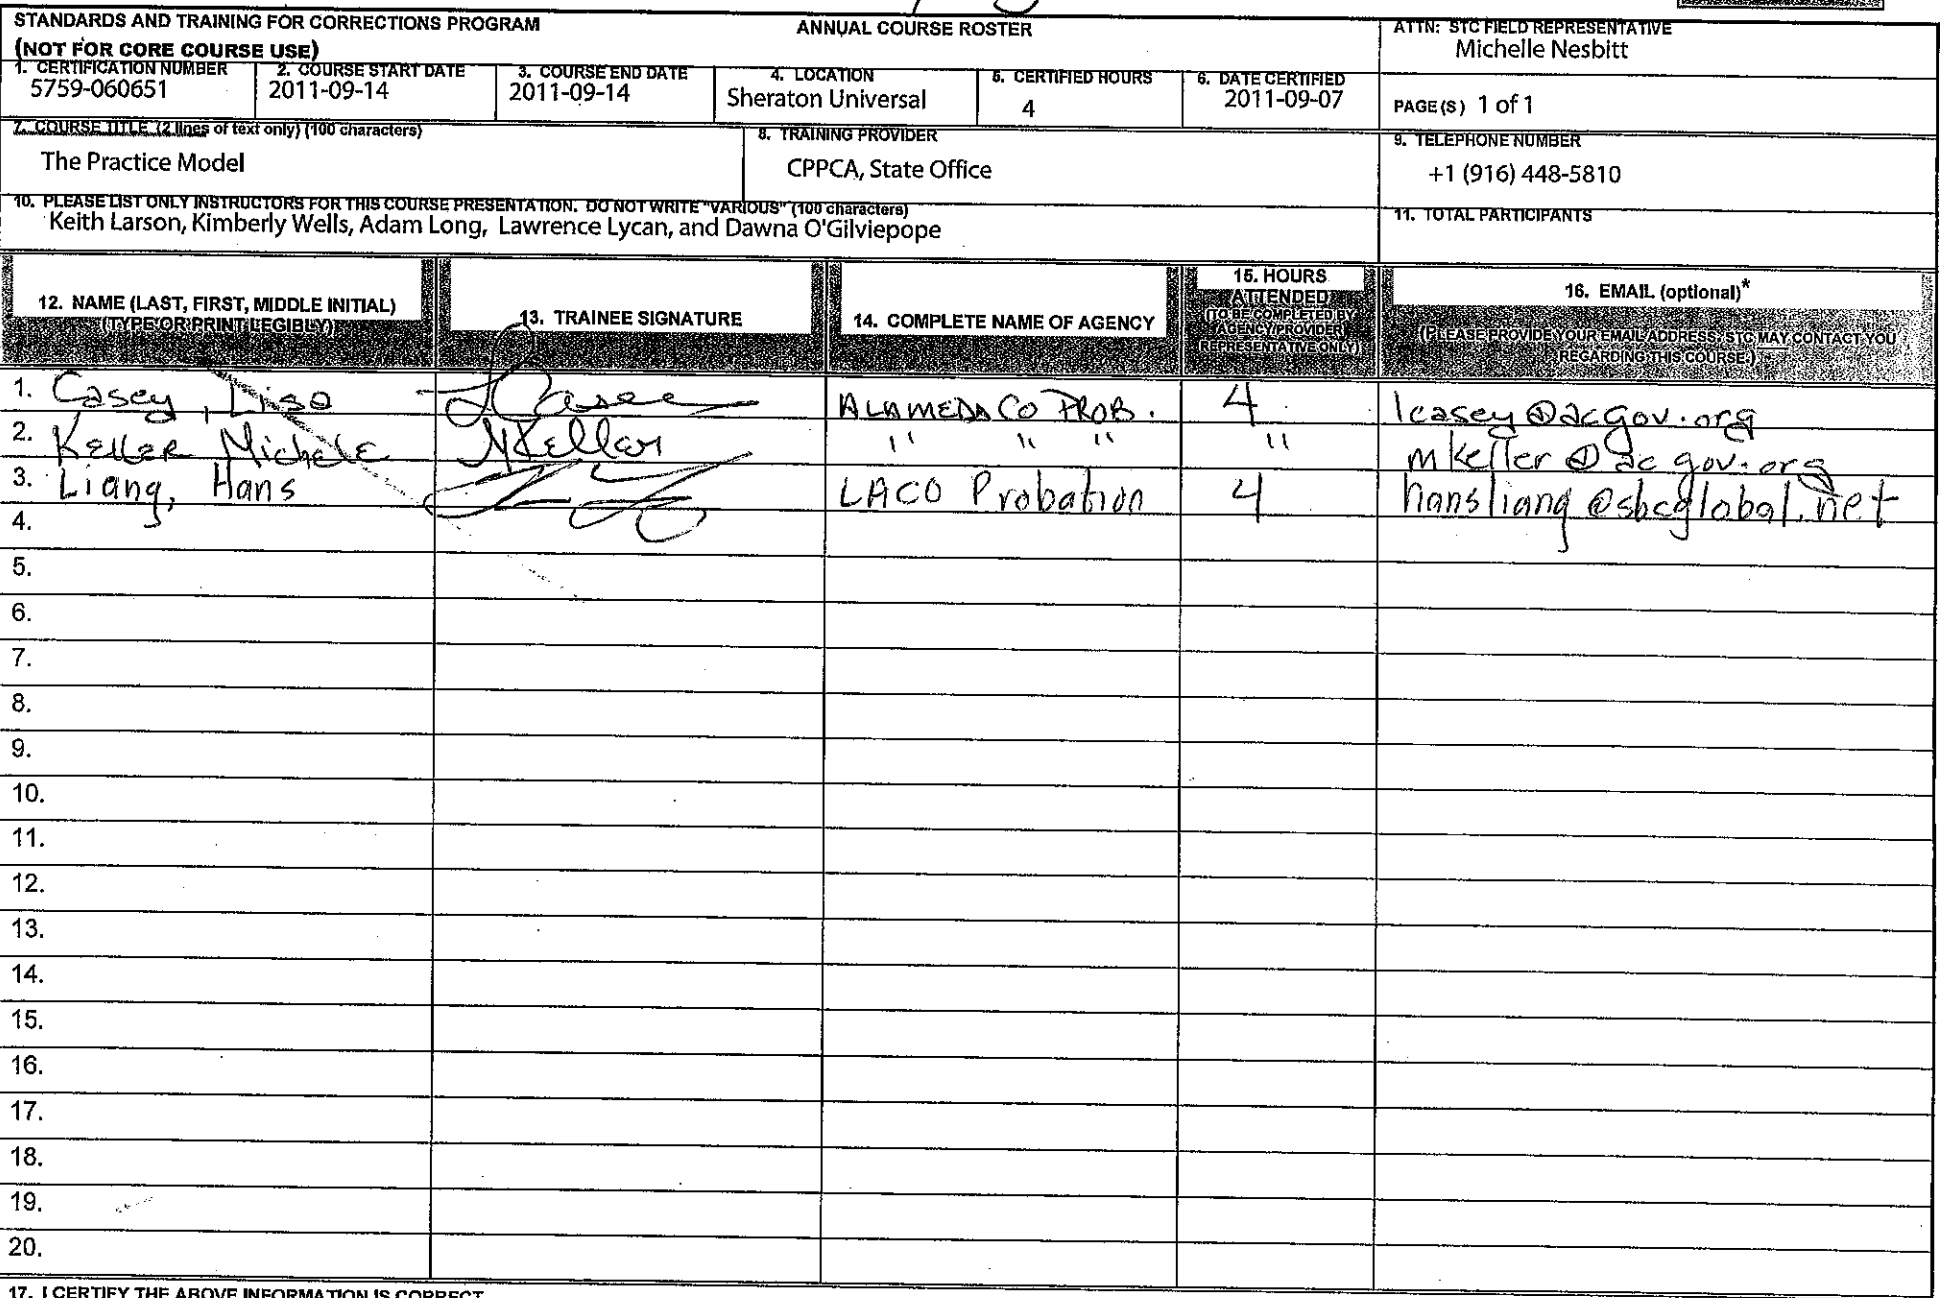 STANDARDS AND TRAINING FOR CORRECTIONS PROGRAM
(NOT FOR CORE COURSE USE)
ANNUAL COURSE ROSTER
ATTN: STC FIELD REPRESENTATIVE
Michelle Nesbitt
1. CERTIFICATION NUMBER
5759-060651
2. COURSE START DATE
2011-09-14
3. COURSE END DATE
2011-09-14
4. LOCATION
Sheraton Universal
5. CERTIFIED HOURS
4
6. DATE CERTIFIED
2011-09-07
PAGE(S) 1 of 1
7. COURSE TITLE (2 lines of text only) (100 characters)
The Practice Model
8. TRAINING PROVIDER
CPPCA, State Office
9. TELEPHONE NUMBER
+1 (916) 448-5810
10. PLEASE LIST ONLY INSTRUCTORS FOR THIS COURSE PRESENTATION. DO NOT WRITE "VARIOUS" (100 characters)
Keith Larson, Kimberly Wells, Adam Long, Lawrence Lycan, and Dawna O'Gilviepope
11. TOTAL PARTICIPANTS
12. NAME (LAST, FIRST, MIDDLE INITIAL)
(TYPE OR PRINT LEGIBLY)
13. TRAINEE SIGNATURE
14. COMPLETE NAME OF AGENCY
15. HOURS
ATTENDED
(TO BE COMPLETED BY
AGENCY/PROVIDER
REPRESENTATIVE ONLY)
16. EMAIL (optional)*
(PLEASE PROVIDE YOUR EMAIL ADDRESS; STC MAY CONTACT YOU
REGARDING THIS COURSE.)
1. Casey, Lisa LCasey ALAMEDA CO PROB. 4 lcasey@acgov.org
2. Keller Michele MKeller " " " " mkeller@acgov.org
3. Liang, Hans LACO Probation 4 hansliang@sbcglobal.net
4.
5.
6.
7.
8.
9.
10.
11.
12.
13.
14.
15.
16.
17.
18.
19.
20.
17. I CERTIFY THE ABOVE INFORMATION IS CORRECT